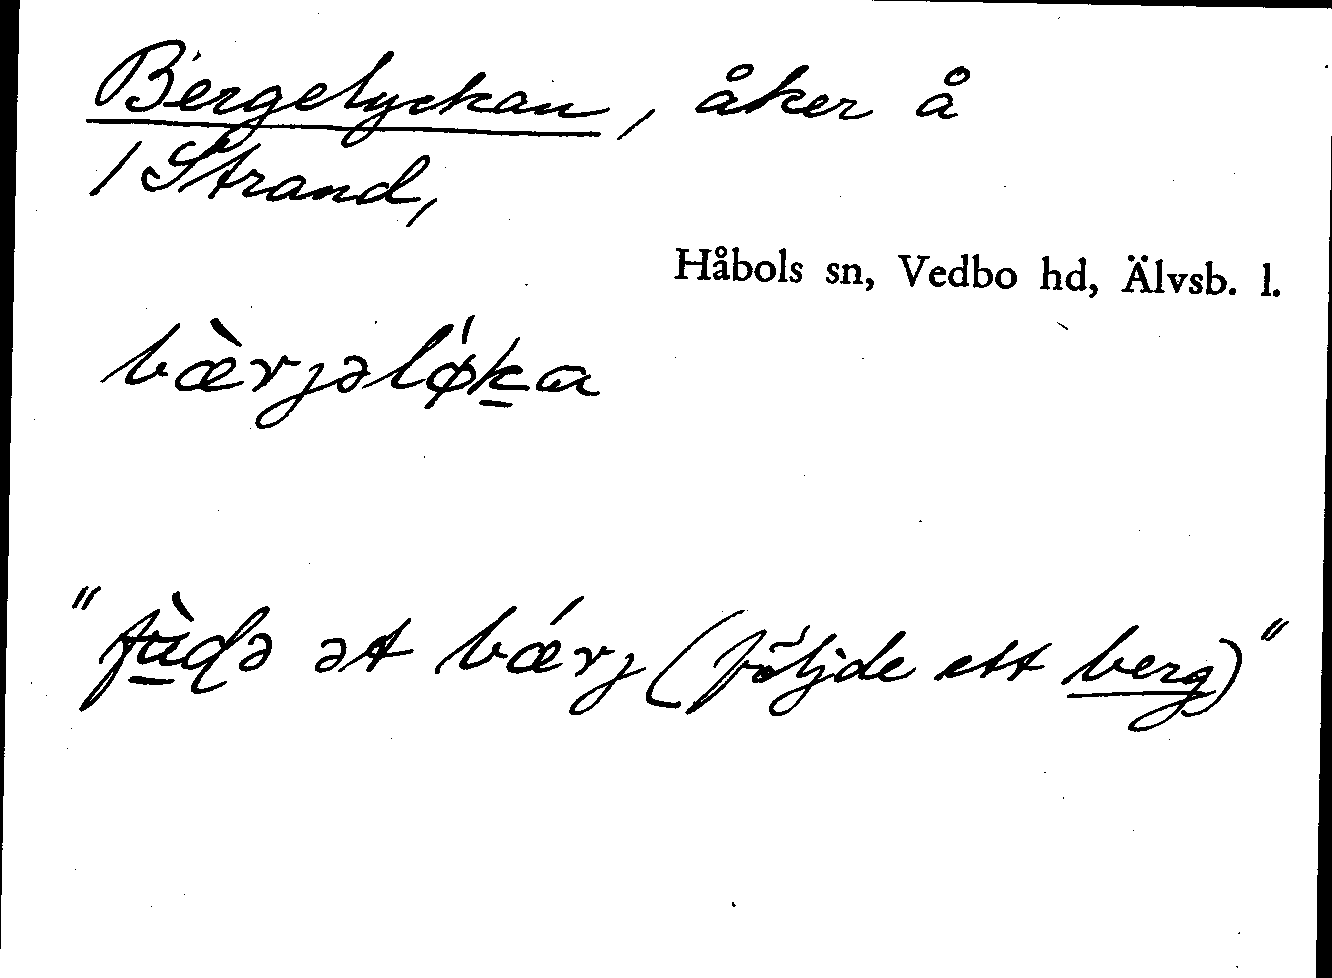 Bergelyckan, åker å
/ Strand,
Håbols sn, Vedbo hd, Älvsb. l.
bæ̀rjəlǿḵa
"fù̱ɖə ət bǽrj (följde ett berg)"